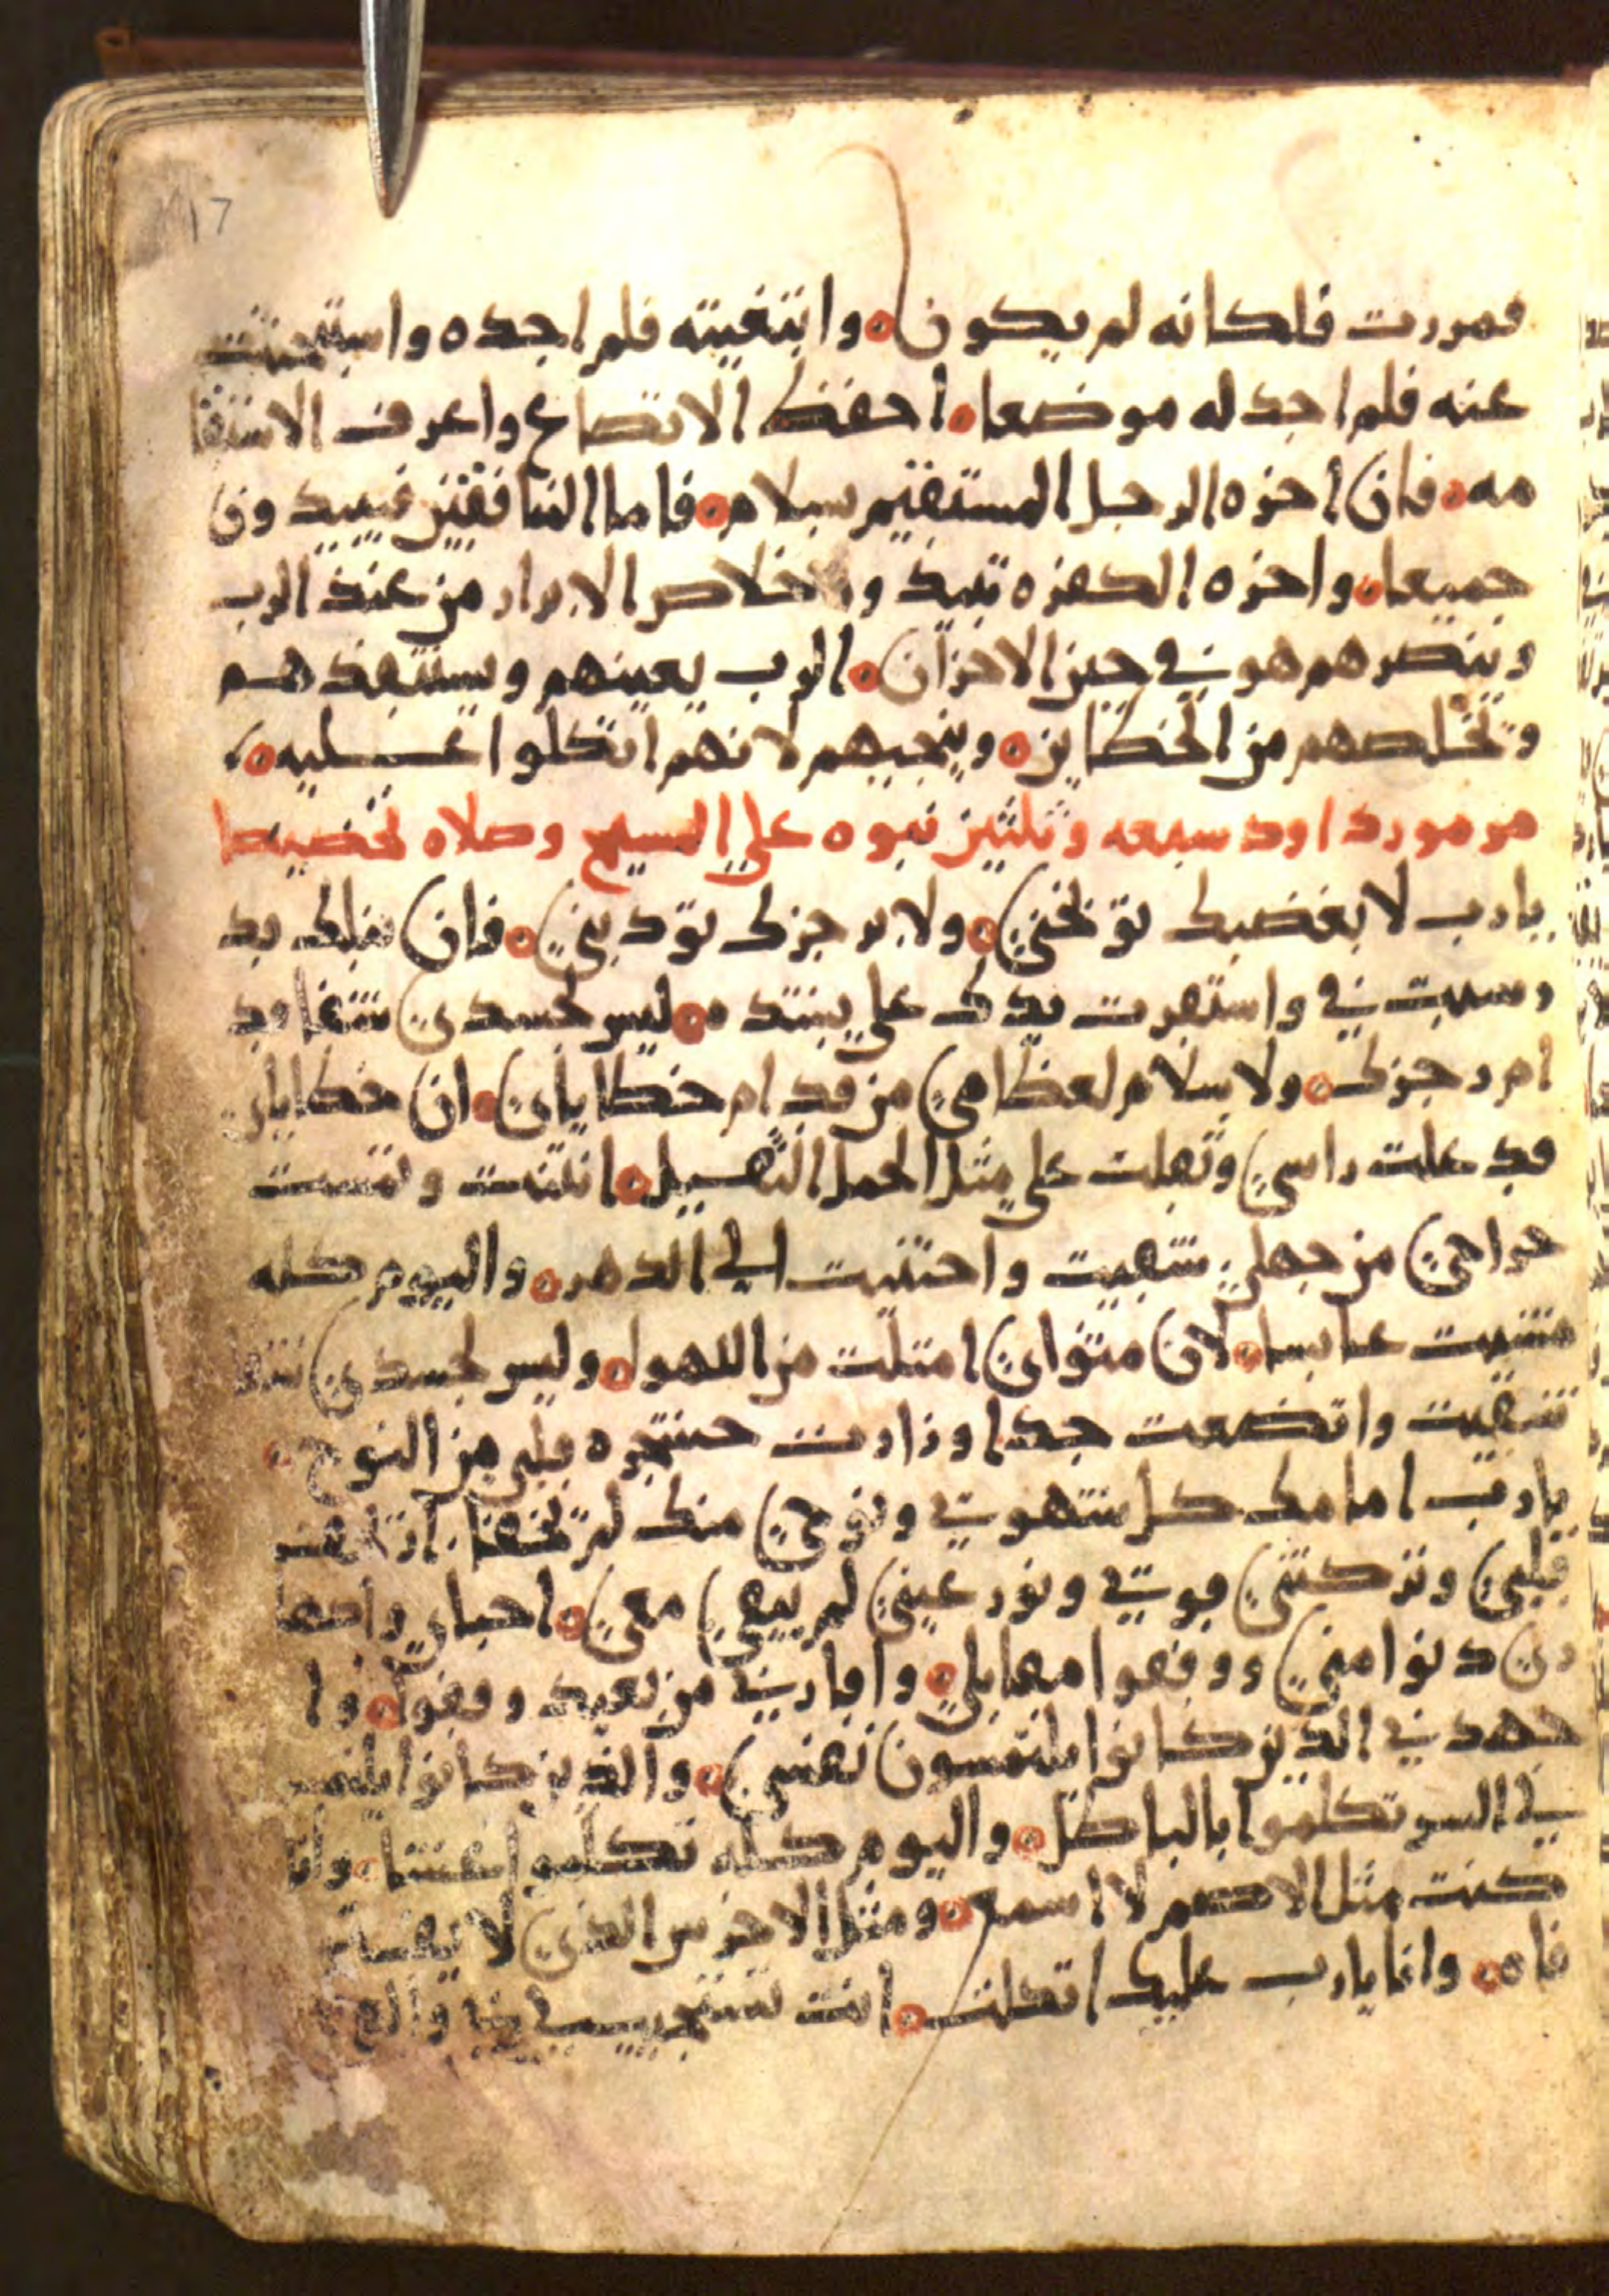 17
فمررت فلكانه لم يكون ه وابتغيته فلم اجده واستبحثت
عنه فلم اجد له موضعا ه احفظ الاتضاع واعرف الاستقا
مه ه فان اخره الرجل المستقيم سلام ه فاما المنافقين فيبيدون
جميعا ه واخره الكفره تبيد و خلاص الابرار من عند الرب
وينصرهم هو في حين الاحزان ه الرب يعينهم ويستنقذهم
ويخلصهم من الخطايين ه وينجيهم لانهم اتكلوا عليه ه
مزمور داود سبعه وثلثين نبوه على المسيح وصلاه
يارب لا بغضبك توبخني ه ولا برجزك تودبني ه فان نبلك قد
رسبت في واستقرت يدك علي بشده ه ليس لجسدي شفا قد
ام رجزك ه ولا سلام لعظامي من قدام خطاياي ه ان خطاياي
قد علت راسي وثقلت علي مثل الحمل الثقيل ه انتنت
جراحي من جهلي شقيت واحتنيت الى الدهر ه واليوم كله
مشيت عابسا ه لان متواي امتلت من اللهو ه وليس لجسدي شفا
شقيت واتضعت جدا وزارت حنجره قلبي من النوح ه
يارب امامك كل شهوتي ونوحي منك لم تخفا
قلبي وتركتني قوتي ونور عيني لم يبقى معي ه احباي
دنوا مني ووقفوا مقابلي ه واقاربي من بعيد وقفوا ه وا
جهدني الذين كانوا يلتمسون نفسي ه والذين كانوا
لي السو تكلموا بالباطل ه واليوم كله تكلموا غشا ه وانا
كنت مثل الاصم لا اسمع ه ومثل الاخرس الذي لا يفتح
فاه ه وانا يارب عليك اتكلت ه انت تستجيب لي